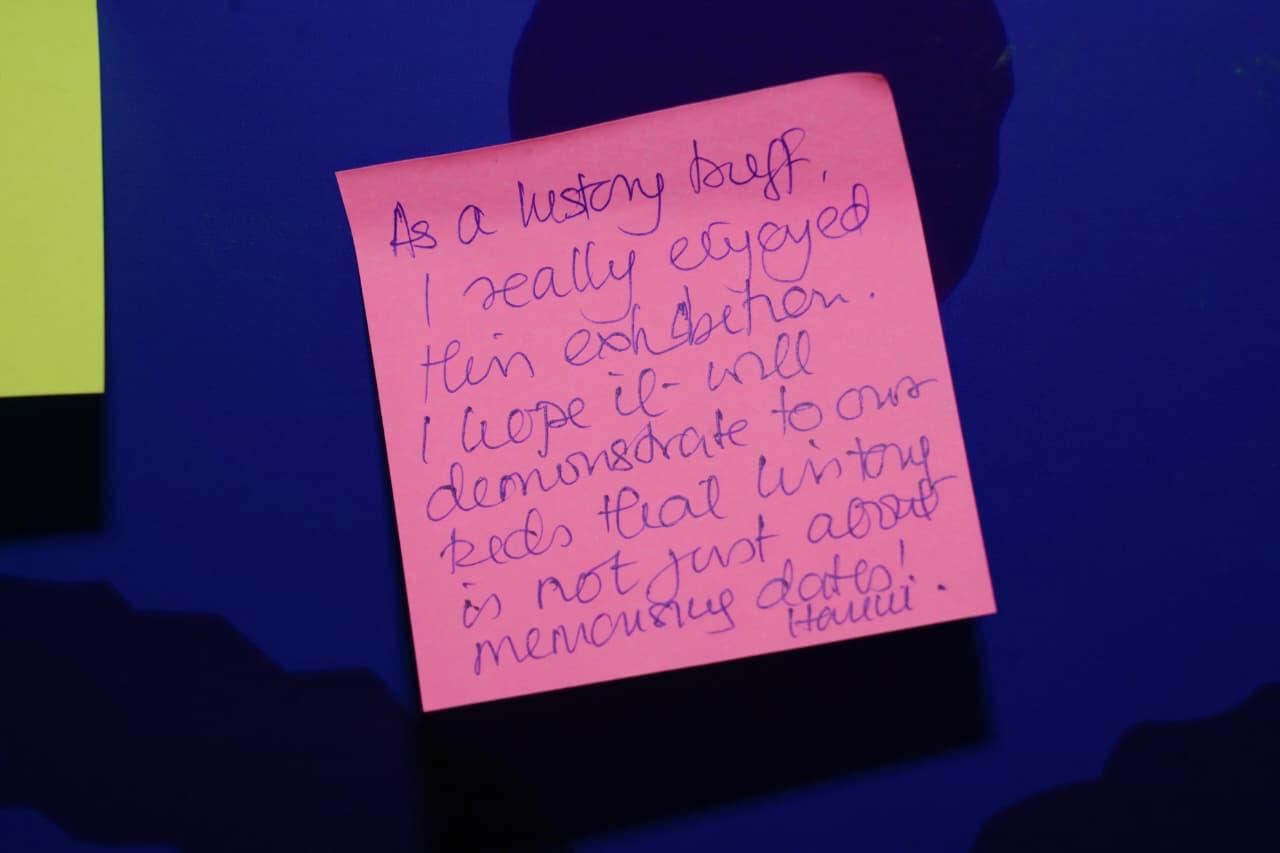 As a history buff,
I really enjoyed
this exhibition.
I hope it will
demonstrate to our
kids that history
is not just about
memorising dates!